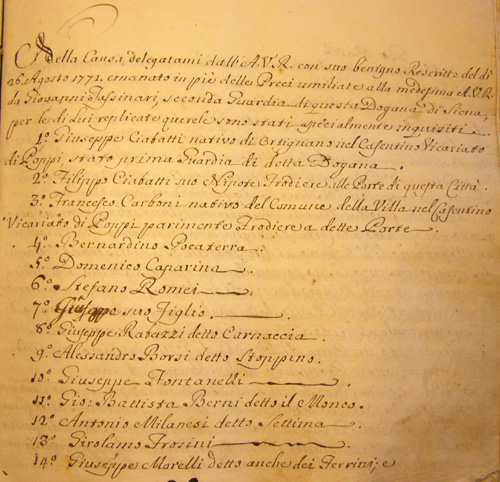 Nella Causa delegatami dall'A.V.R. con suo benigno Rescritto del dì
26. Agosto 1772. emanato in piè delle Preci umiliate alla medesima A.V.R.
da Giovanni Tassinari, seconda Guardia di questa Dogana di Siena,
per le di Lui replicate querele sono stati specialmente inquisiti
1.º Giuseppe Ciabatti nativo di Ortignano nel Casentino Vicariato
di Poppi, stato prima Guardia di detta Dogana.
2.º Filippo Ciabatti suo Nipote, Frodiere alle Porte di questa Città.
3.º Francesco Carboni nativo del Comune della Villa nel Casentino
Vicariato di Poppi parimente Frodiere a dette Porte.
4.º Bernardino Pocaterra.
5.º Domenico Caparina.
6.º Stefano Romei.
7.º Giuseppe suo Figlio.
8.º Giuseppe Rabazzi detto Carnaccia.
9.º Alessandro Borsi detto Stoppino.
10.º Giuseppe Fontanelli.
11.º Gio: Battista Berni detto il Monco.
12.º Antonio Milanesi detto Settima.
13.º Girolamo Frosini.
14.º Giuseppe Morelli detto anche dei Ferrini; e